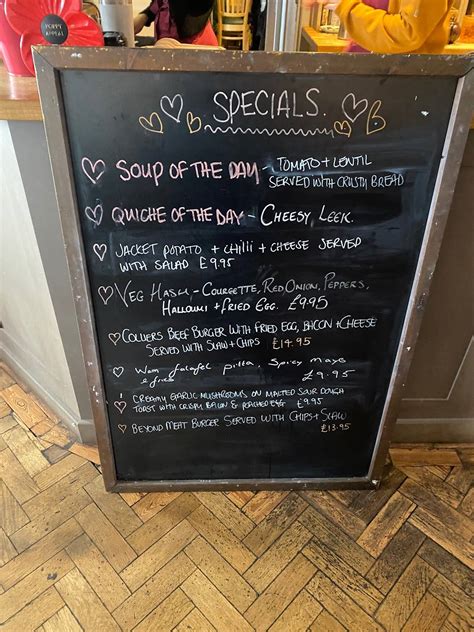 POPPY
APPEAL
SPECIALS.
SOUP OF THE DAY - TOMATO + LENTIL
SERVED WITH CRUSTY BREAD
QUICHE OF THE DAY - CHEESY LEEK.
JACKET POTATO + CHILLI + CHEESE SERVED
WITH SALAD £9.95
VEG HASH - COURGETTE, RED ONION, PEPPERS,
HALLOUMI + FRIED EGG. £9.95
COLLIERS BEEF BURGER WITH FRIED EGG, BACON + CHEESE
SERVED WITH SLAW + CHIPS £14.95
Warm falafel pitta, Spicy Mayo
& fries £9.95
CREAMY GARLIC MUSHROOMS ON MALTED SOUR DOUGH
TOAST WITH CRISPY BACON & POACHED EGG £9.95
BEYOND MEAT BURGER SERVED WITH CHIPS + SLAW
£13.95